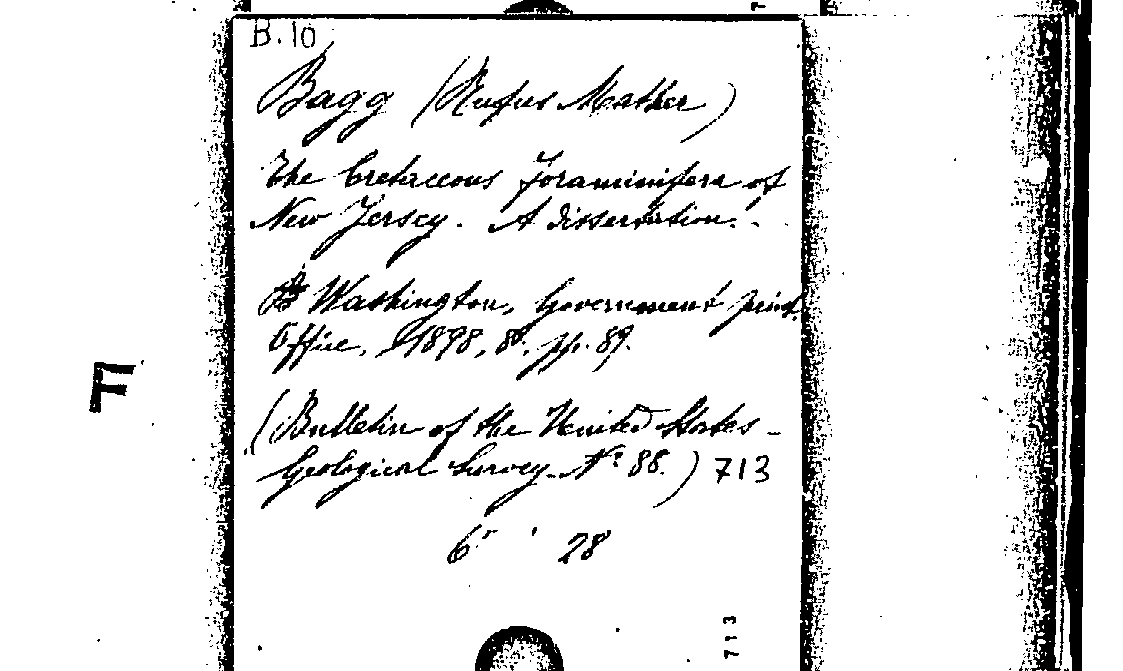 B.10
Bagg (Rufus Mather)
The Cretaceous Foraminifera of
New Jersey. A dissertation.
Washington, Government print.
Office, 1898, 8º. pp. 89.
F
(Bulletin of the United States
Geological Survey. Nº 88.) 713
28
713